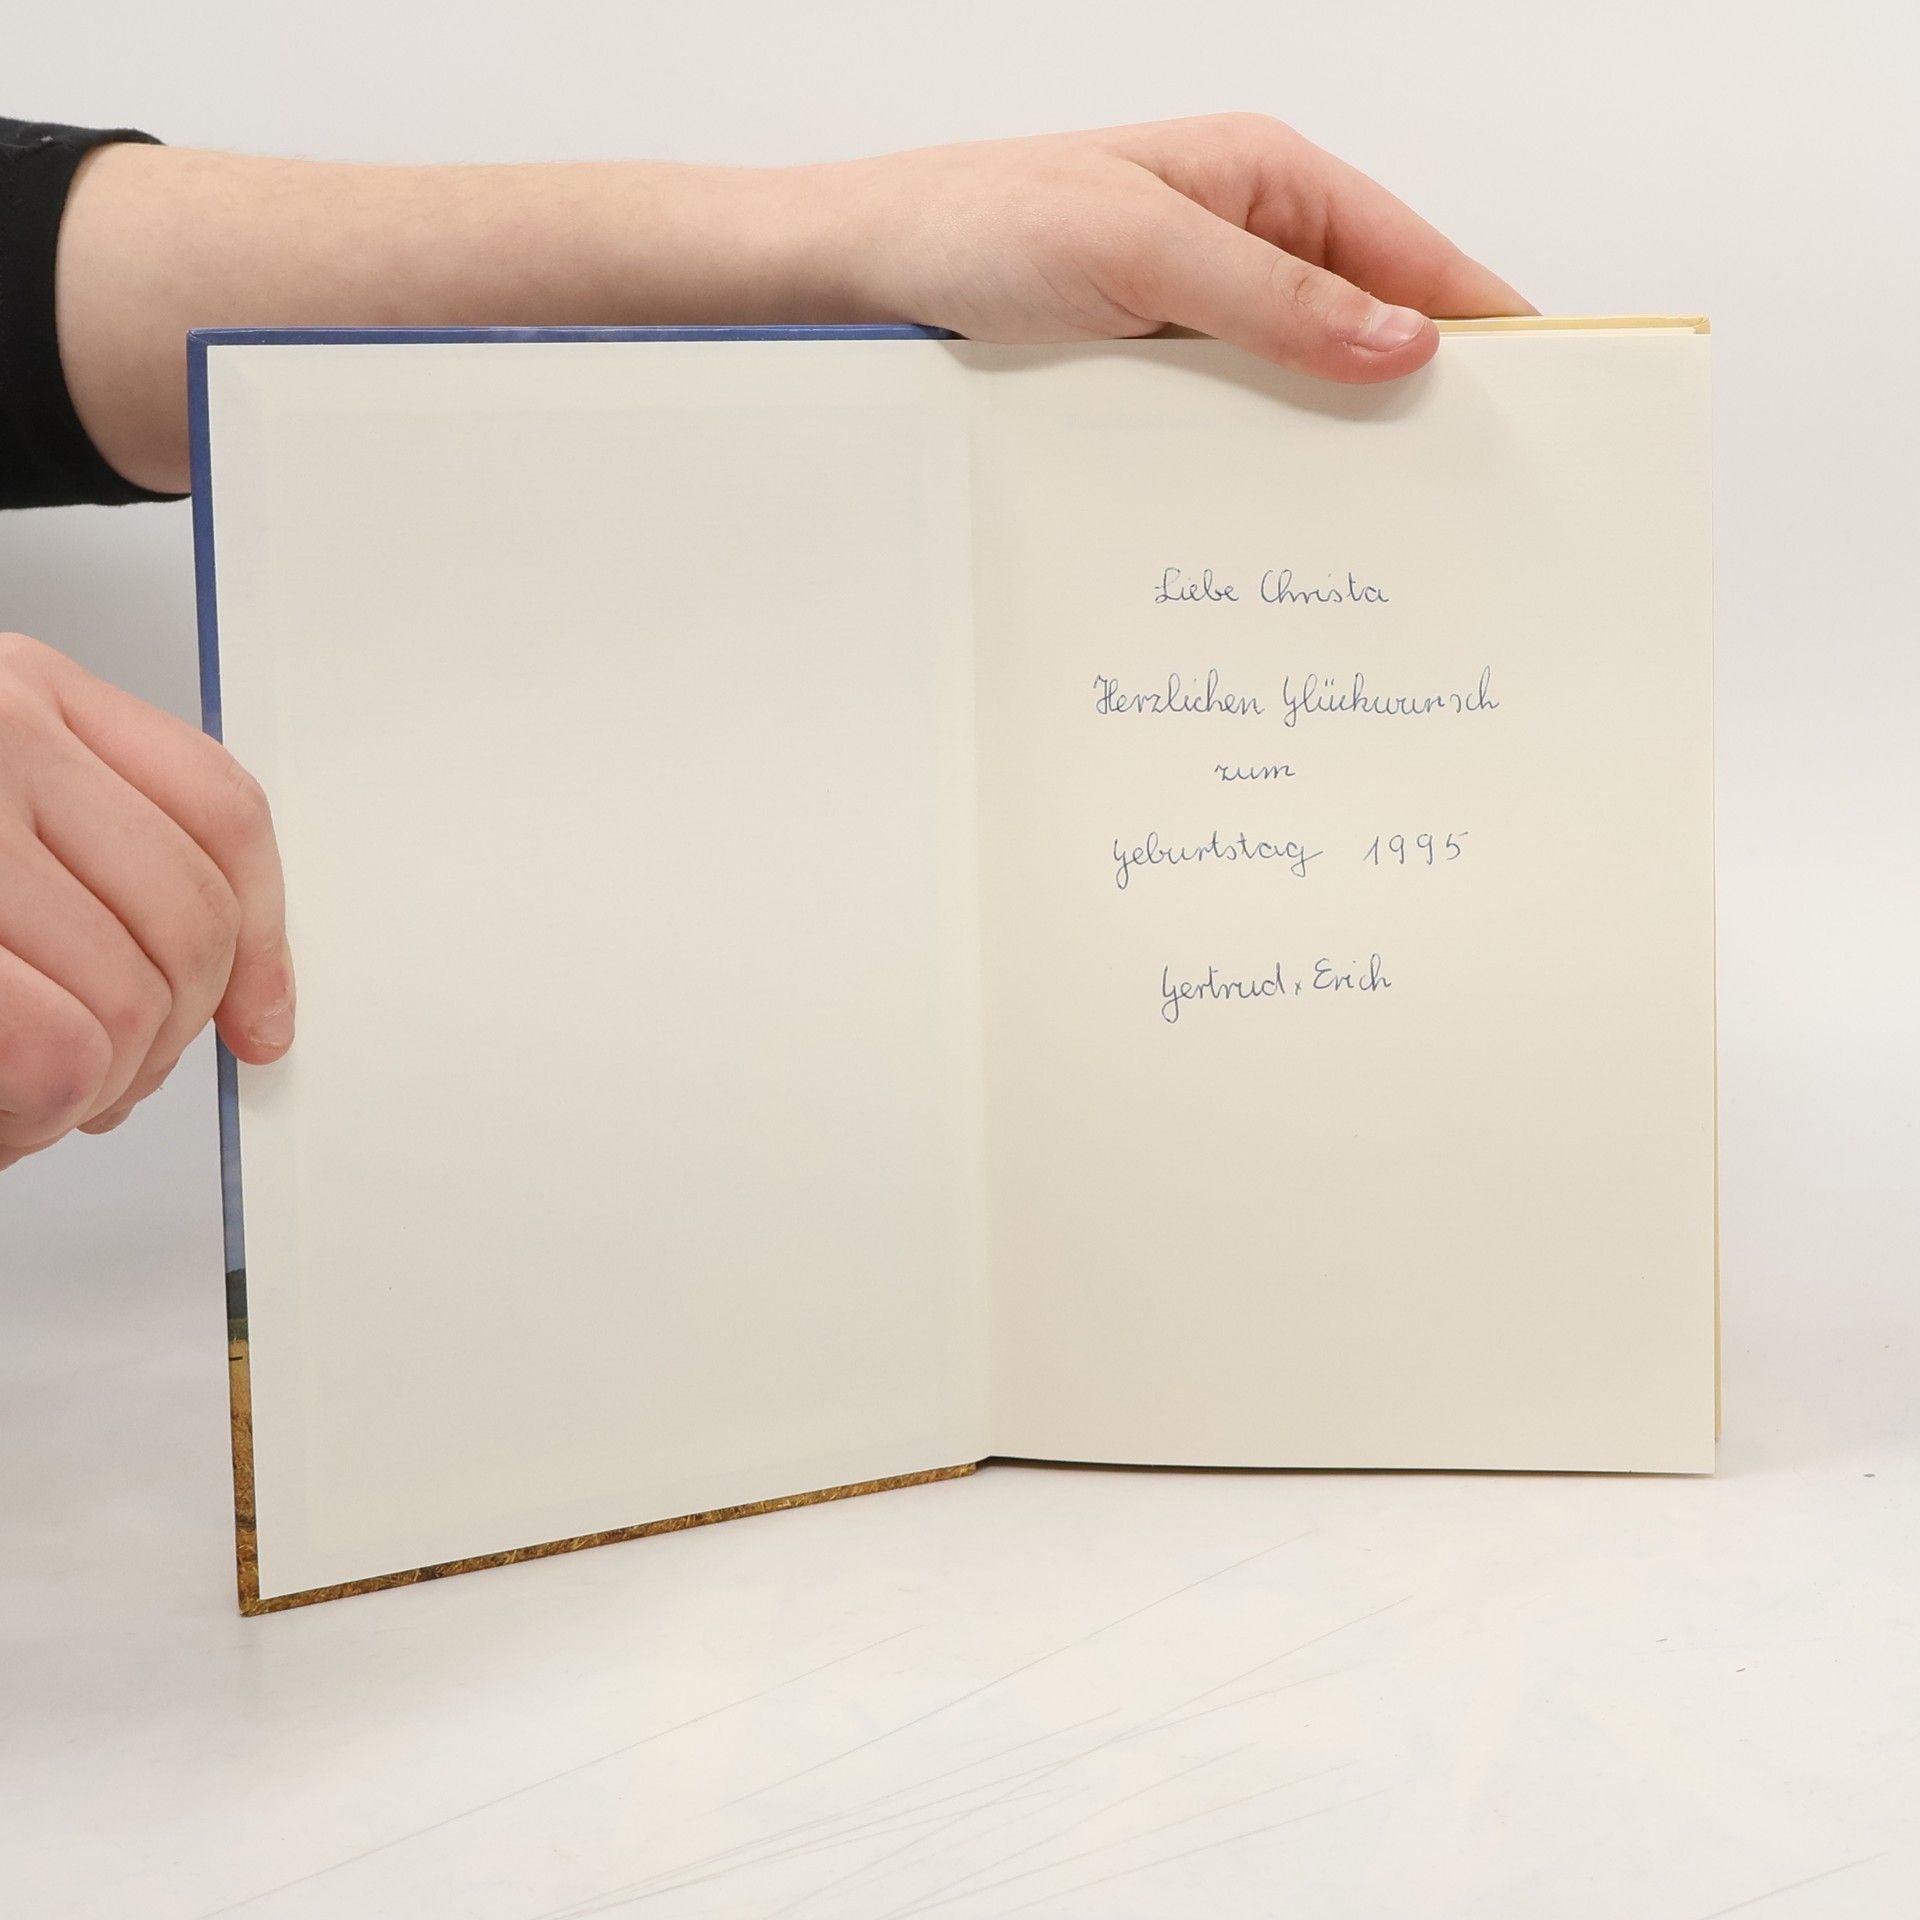 Liebe Christa
Herzlichen Glückwunsch
zum
Geburtstag 1995
Gertrud x Erich